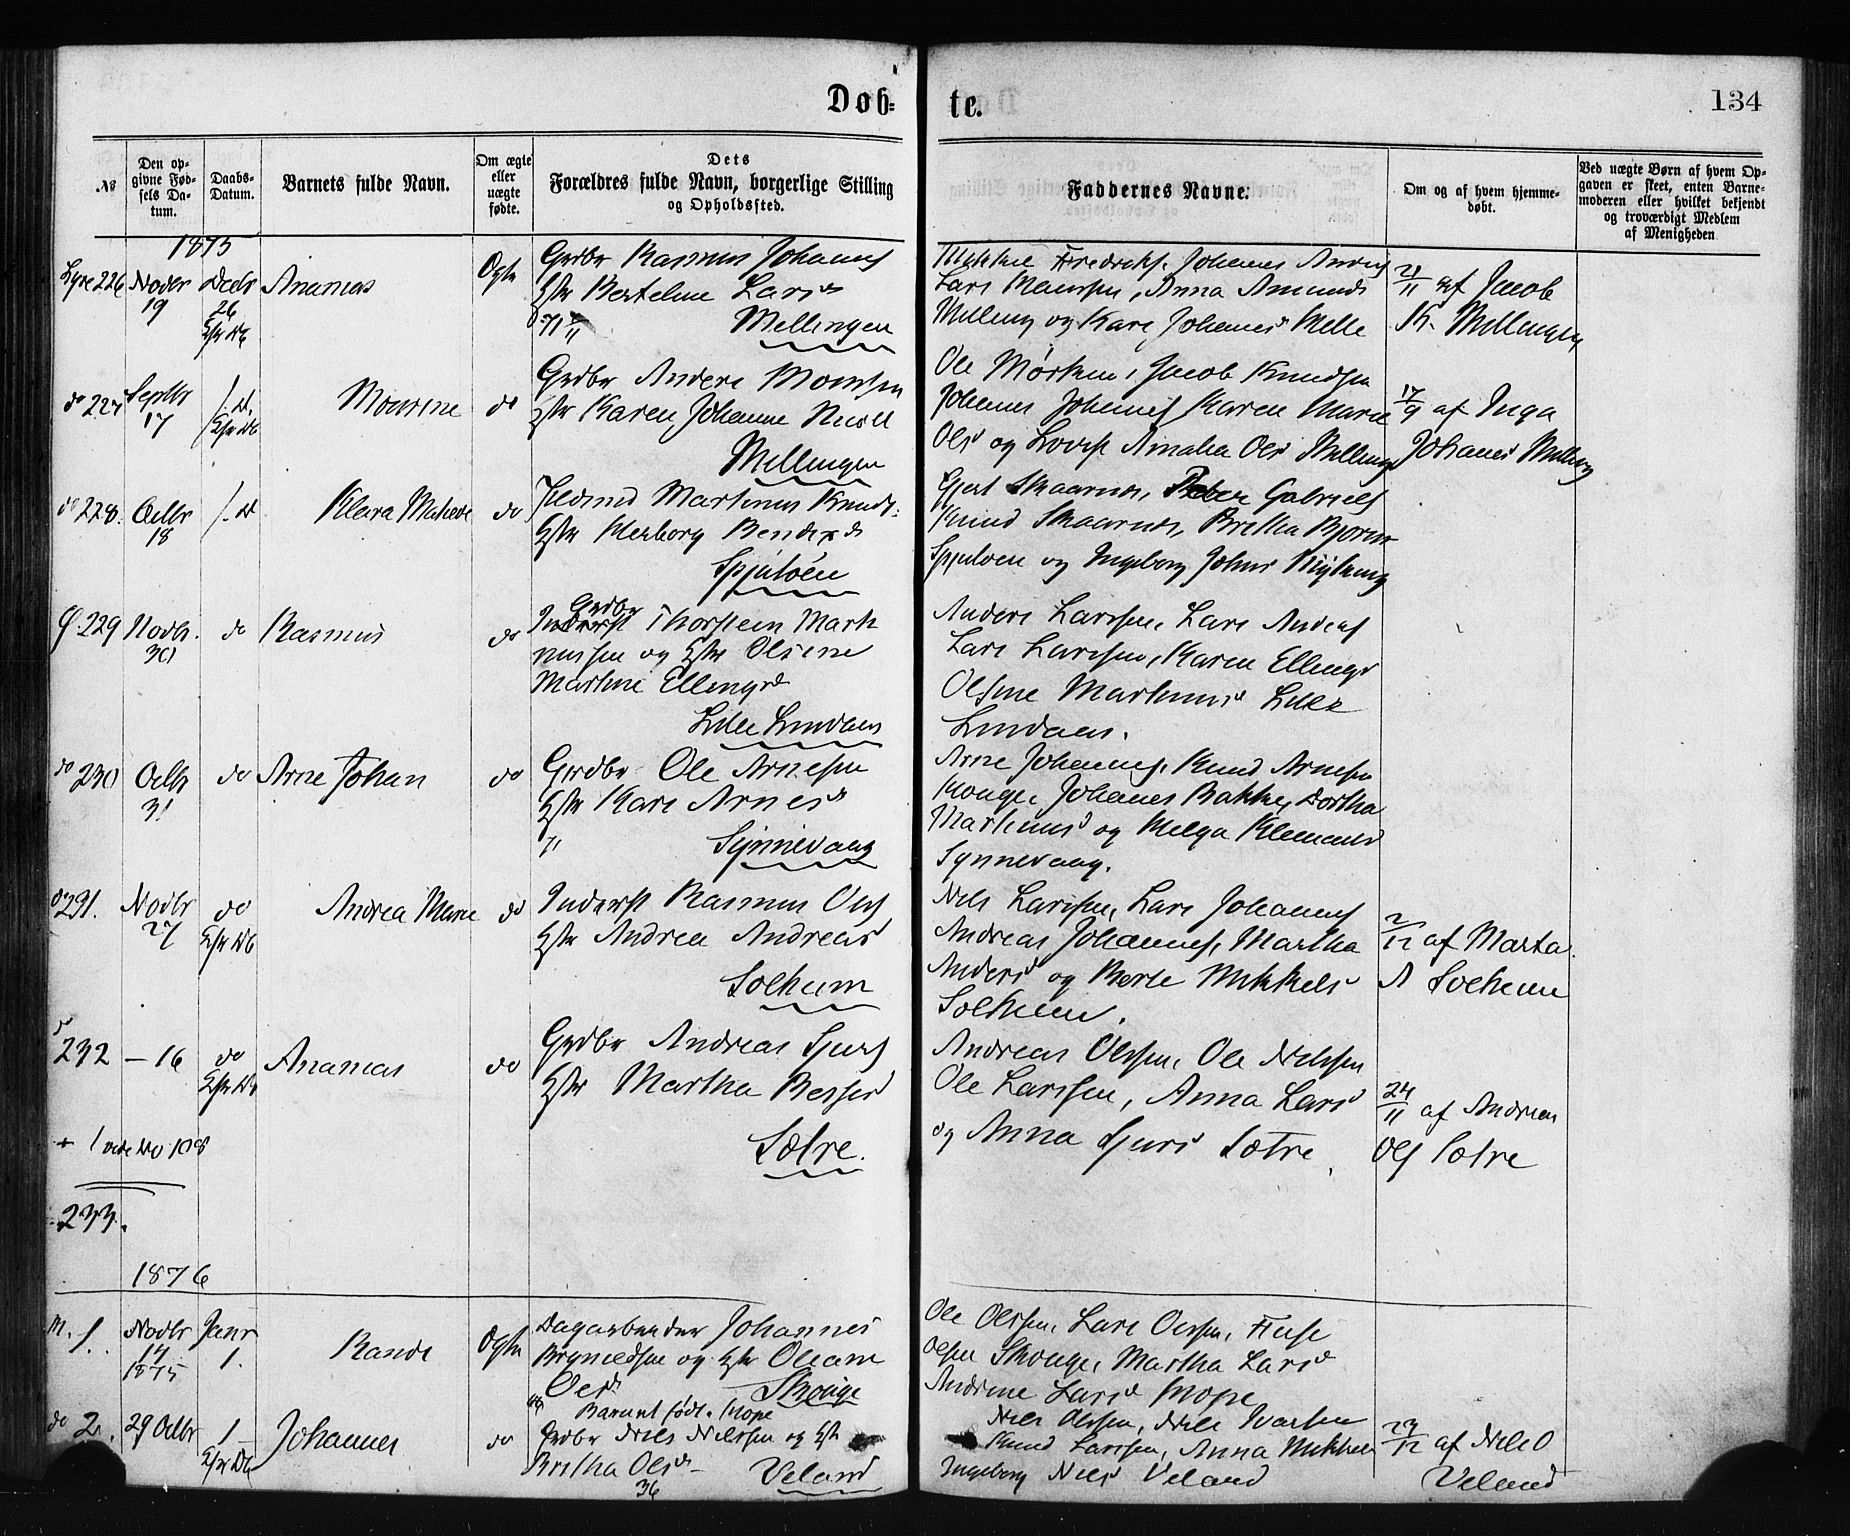 Døb-
te.
134
№
Den op-
givne Fød-
sels Da-
tum.
Daabs-
Datum.
Barnets fulde Navn.
Om ægte
eller
uægte
fødte.
Dets
Forældres fulde Navn, borgerlige Stilling
og Opholdssted.
Faddernes Navne.
Om og af hvem hjemme-
døbt.
Ved uægte Børn af hvem Op-
gaven er skeet, enten Barne-
moderen eller hvilket bekjendt
og troværdigt Medlem
af Menigheden
1875
226 Novbr 19 Decbr 26 Ananias Ægte
Grdbr Rasmus Johannes
Berteline Lars d
Mellingen
Mikkel Fredriks. Johannes Anders
Lars Monssen, Anna Amunds
Melling og Kari Johannes Melle
21/11 af Jacob
K. Mellingen
do 227 Septbr 17 Monsine do
Grdbr Anders Monssen
Karen Johanne
Mellingen
Ole Mørken, Jacob Knudsen
Johannes Johannes Karen Marie
Ols d og Lovise Amalia Ols Melling
17/9 af Inga
Johannes Melling
do 228. Octbr 18 Klara do
Martinus Knuds.
Bendix d
Spjutøen
Gjert Skaarnes, Peder Gabriels
Knud Skaarnes, Britha
Spjutøen og Ingeborg Johns
229 Novbr. 30 do Rasmus do
Grdbr
Inderst Thorstein Marti
nussen og Olsine
Martine Ellings d
Lille Lindaas
Anders Larssen, Lars Anders
Lars Larssen, Karen Ellings d
Olsine Martinus d Lille
Lindaas.
do 230 Octbr 31 do Arne Johan do
Grdbr Ole Arnesen
Kari Arnes d
Synnevaag
Arne Johannes, Knud Arnesen
Skouge, Johannes Bakke, Dortha
Martinus d og Helga Klemends
Synnevaag.
do 231. Novbr 27 do Andrea Marie do
Inderst Rasmus Ols
Andrea Andreas d
Solheim
Nels Larssen, Lars Johannes
Andreas Johannes, Martha
Anders d og Berte Mikkels d
Solheim.
2/12 af Marta
A Solheim
232 – 16 do Ananias do
Grdbr Andreas Sjurs
Martha
Sætre.
Andreas Olssen, Ole Nilssen
Ole Larssen, Anna Lars d
og Anna Sjurs Sætre.
24/11 af Andreas
Ols Sætre
+ 1 vide No 108
233.
1876
M. 1. Novbr 14 1875 Janr 1. Randi Ægte
Dagarbeider Johannes
Brynildsen og Oleane
Ols d Skouge
Barnet født. Hope
Ole Olssen, Lars Olssen,
Olsen Skouge, Martha Lars d
Andrine Lars d Hope
do 2. 29 Octbr 1 Johannes do
Grdbr Nils Nilssen og
Britha Ols d – Veland
36
Nels Olssen, Nils Ivarsen
Knud Larssen, Anna Mikkels
Ingeborg Nels d Veland
23/12 af Nils O
Veland